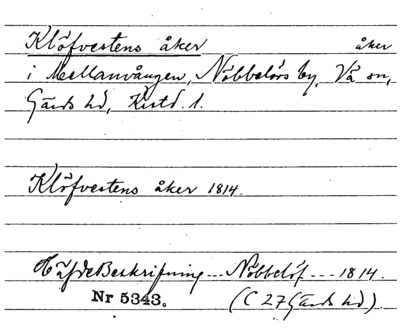 Klöfvestens åker åker
i Mellanvången, Nöbbelöfs by, Vä sn,
Gärds hd, Kristd. l.
Klöfvestens åker 1814.
Häfde Beskrifning --- Nöbbelöf --- 1814.
Nr 5343. (C 27 Gärds hd)